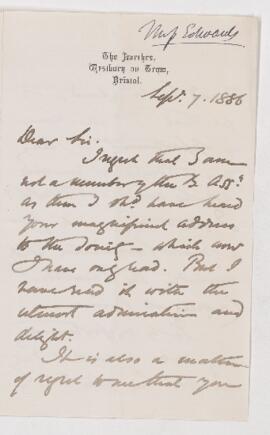 Miss Edwards
The Larches,
Westbury on Trym,
Bristol.
Sept. 7. 1886
Dear Sir.
I regret that I am
not a member of the B. Assn.
as then I shd. have heard
your magnificent address
to the
which now
I have only read. But I
have read it with the
utmost admiration and
delight.
It is also a matter
of regret to me that you